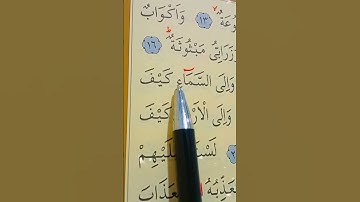 وعَةٌ ١٣ وَاَكْوَابٌ
زَرَابِيُّ مَبْثُوثَةٌ ١٦
وَاِلَى السَّمَٓاءِ كَيْفَ
وَاِلَى الْاَرْ كَيْفَ
لَسْتَ عَلَيْهِمْ
الْعَذَابَ